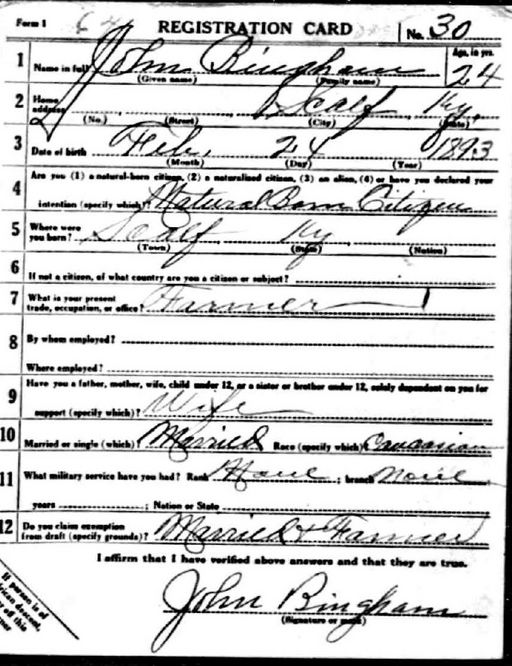 Form 1 REGISTRATION CARD No. 30
1 Name in full John Bingham Age, in yrs. 24
(Given name) (Family name)
2 Home address Scalf Ky.
(No.) (Street) (City) (State)
3 Date of birth Feb. 24 1893
(Month) (Day) (Year)
4 Are you (1) a natural-born citizen, (2) a naturalized citizen, (3) an alien, (4) or have you declared your
intention (specify which)? Natural Born Citizen
5 Where were you born? Scalf Ky
(Town) (State) (Nation)
6 If not a citizen, of what country are you a citizen or subject?
7 What is your present trade, occupation, or office? Farmer
8 By whom employed?
Where employed?
9 Have you a father, mother, wife, child under 12, or a sister or brother under 12, solely dependent on you for
support (specify which)? Wife
10 Married or single (which)? Married Race (specify which)? Caucasian
11 What military service have you had? Rank None ; branch None
years ; Nation or State
12 Do you claim exemption from draft (specify grounds)? Married & Farmer
I affirm that I have verified above answers and that they are true.
John Bingham
(Signature or mark)
If person is of
African descent,
of this